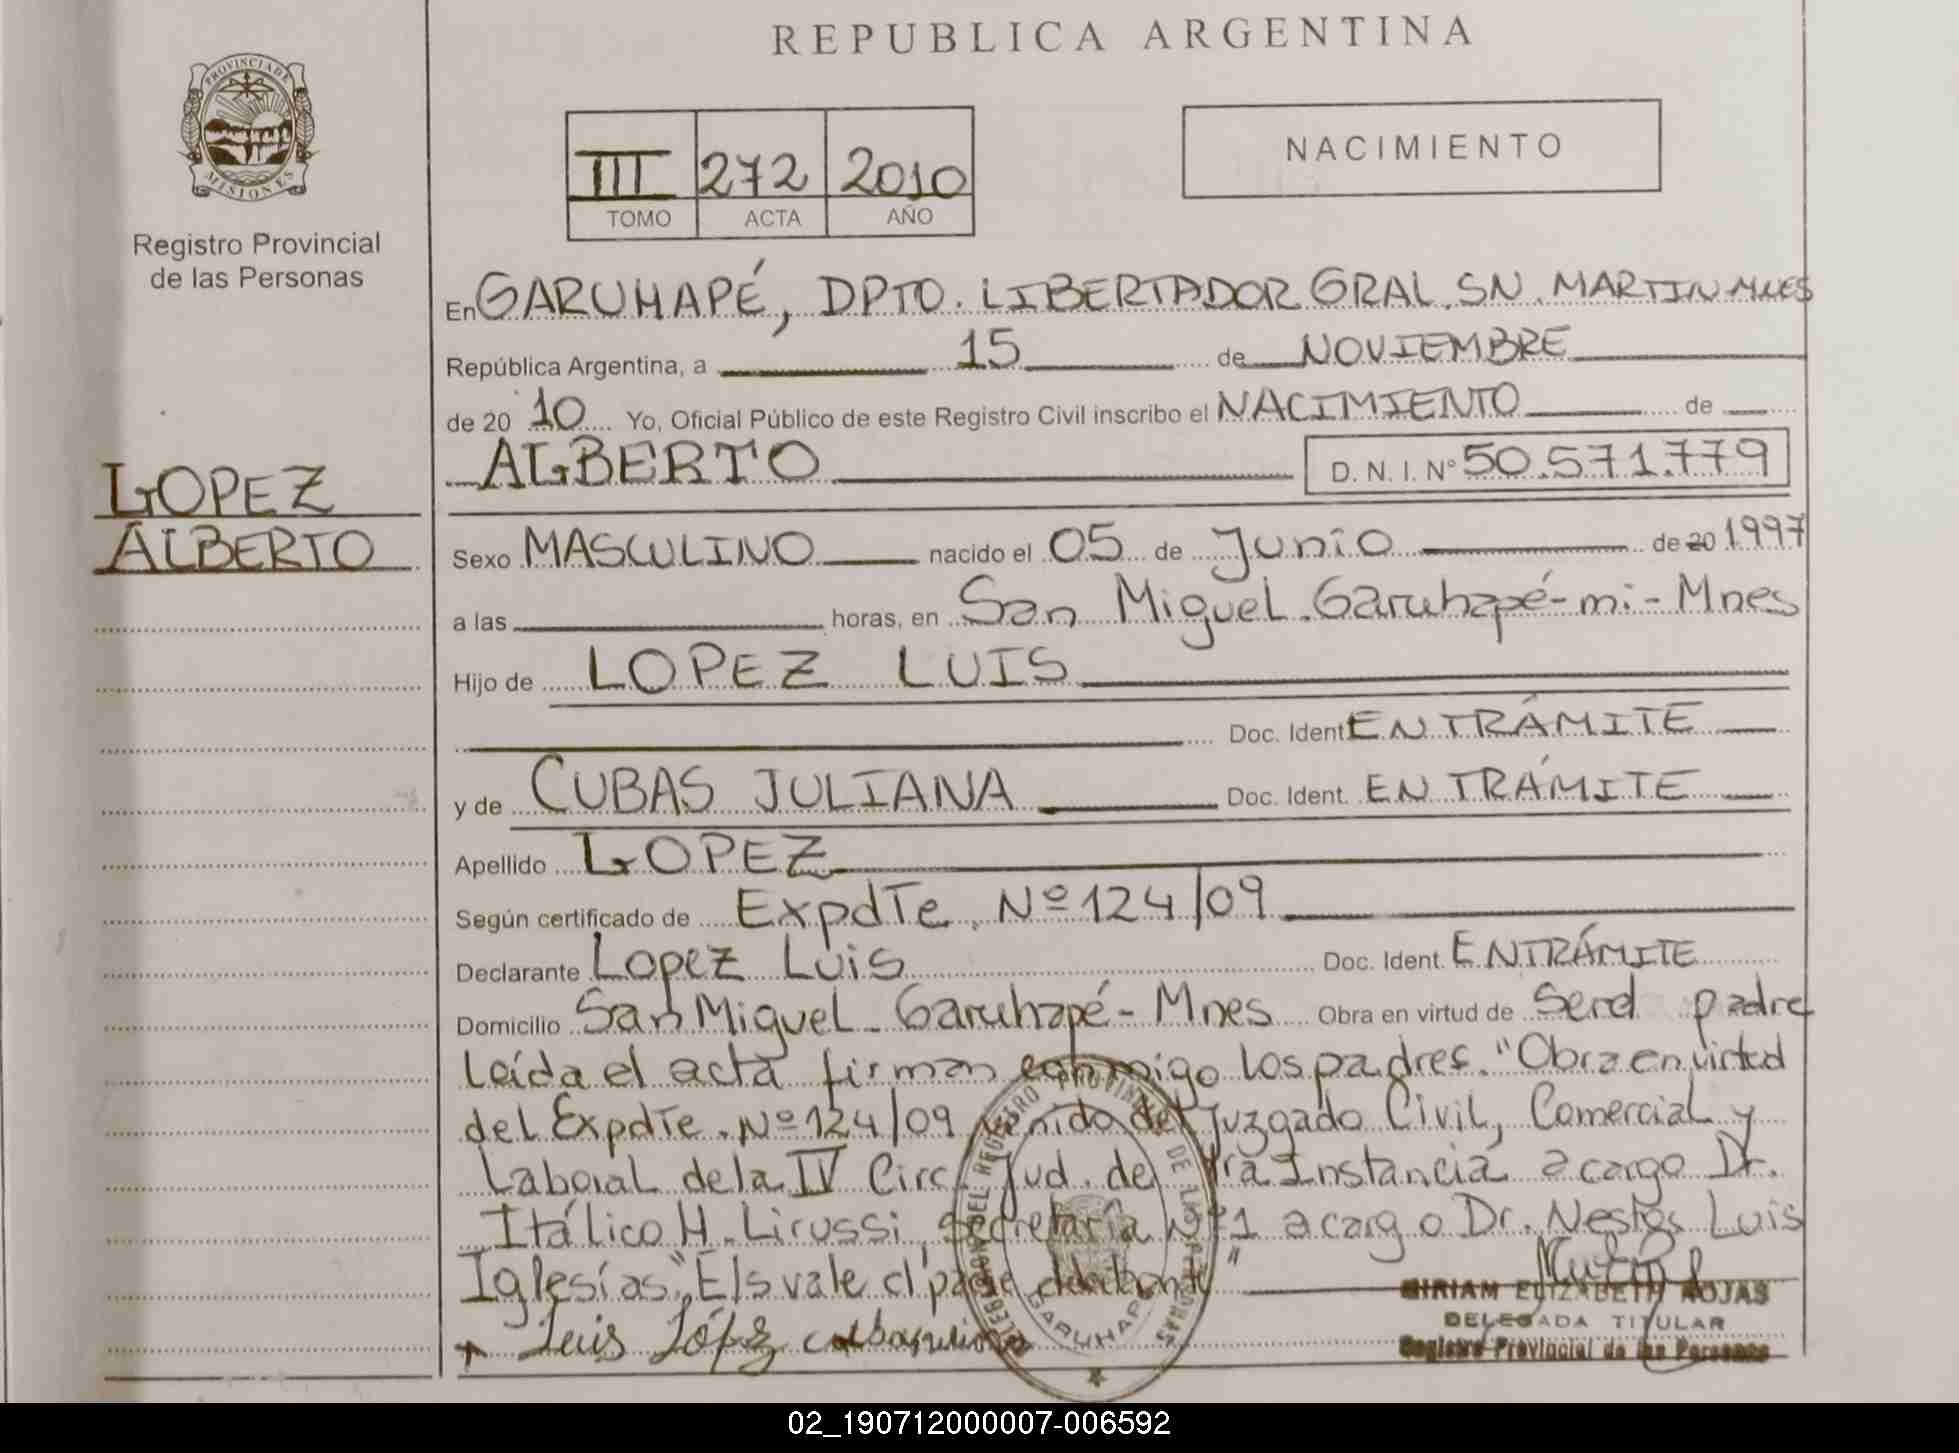 REPUBLICA ARGENTINA
PROVINCIA DE
MISIONES
Registro Provincial
de las Personas
III 272 2010
TOMO ACTA AÑO
NACIMIENTO
En GARUHAPÉ, DPTO. LIBERTADOR GRAL. SN. MARTIN MNES
República Argentina, a 15 de NOVIEMBRE
de 20 10 Yo, Oficial Público de este Registro Civil inscribo el NACIMIENTO de
ALBERTO D. N. I. Nº 50.571.779
LOPEZ
ALBERTO
Sexo MASCULINO nacido el 05 de Junio de 20 1997
a las horas, en San Miguel. Garuhapé-mi-Mnes
Hijo de LOPEZ LUIS
Doc. Ident EN TRÁMITE
y de CUBAS JULIANA Doc. Ident. EN TRÁMITE
Apellido LOPEZ
Según certificado de ExpdTe. Nº 124/09
Declarante Lopez Luis Doc. Ident. EN TRÁMITE
Domicilio San Miguel - Garuhapé - Mnes Obra en virtud de Ser el padre
Leída el acta firman conmigo los padres. "Obra en virtud
del ExpdTe. Nº 124/09 venido del Juzgado Civil, Comercial y
Laboral de la IV Circ. Jud. de 1ra Instancia a cargo Dr.
Itálico H. Lirussi, secretaría Nº 1 a cargo Dr. Nestor Luis
Iglesías" E/s vale el padre
Luis López
MIRIAM ELIZABETH ROJAS
DELEGADA TITULAR
Registro Provincial de las Personas
GARUHAPE
02_190712000007-006592